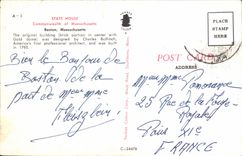 A-3
STATE HOUSE
Commonwealth of Massachusetts
Boston, Massachusetts
The original building (brick portion in center with
Gold dome) was designed by Charles Bulfinch,
America's first professional architect, and was built
in 1795.
PLACE
STAMP
HERE
POST CARD
ADDRESS
Bien le Bonjour de
Boston de la
part de mon mme
Mr mme
25 Rue de la
Paris XIe
FRANCE
C-24678